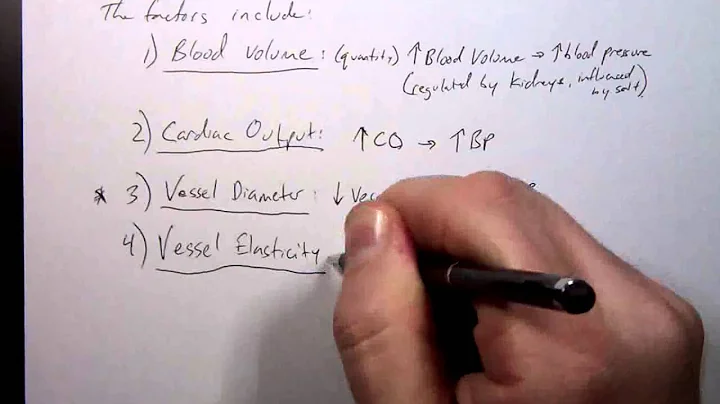 The factors include:
1) Blood Volume: (quantity) ↑Blood Volume → ↑blood pressure
(regulated by kidneys, influenced
by salt).
2) Cardiac Output: ↑CO → ↑BP
* 3) Vessel Diameter: ↓
4) Vessel Elasticity